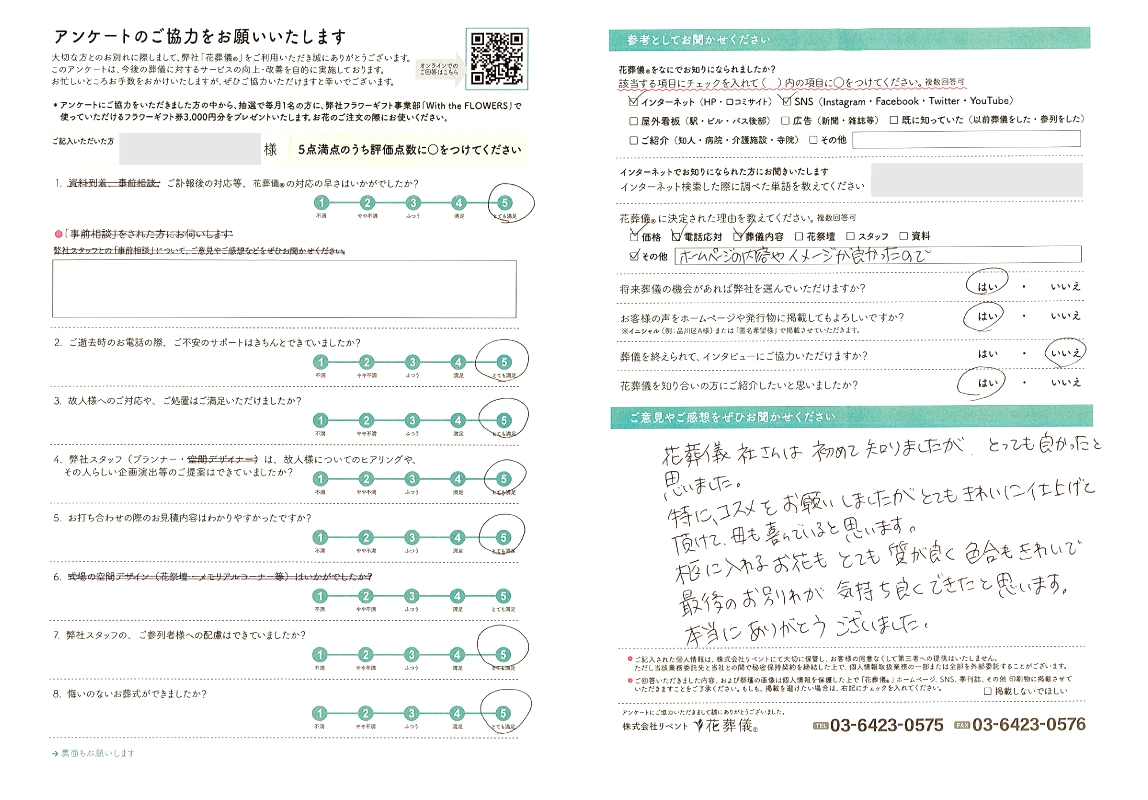 アンケートのご協力をお願いいたします
大切な方とのお別れに際しまして、弊社「花葬儀®」をご利用いただき誠にありがとうございます。
このアンケートは、今後の葬儀に対するサービスの向上・改善を目的に実施しております。
お忙しいところお手数をおかけいたしますが、ぜひご協力いただけますと幸いでございます。
オンラインでの
ご回答はこちら
* アンケートにご協力をいただきました方の中から、抽選で毎月1名の方に、弊社フラワーギフト事業部「With the FLOWERS」で
使っていただけるフラワーギフト券3,000円分をプレゼントいたします。お花のご注文の際にお使いください。
ご記入いただいた方 様 5点満点のうち評価点数に○をつけてください
1. 資料到着、事前相談、ご訃報後の対応等、花葬儀®の対応の早さはいかがでしたか?
1 2 3 4 5
不満 やや不満 ふつう 満足 とても満足
●「事前相談」をされた方にお伺いします
弊社スタッフとの「事前相談」について、ご意見やご感想などをぜひお聞かせください。
2. ご逝去時のお電話の際、ご不安のサポートはきちんとできていましたか?
1 2 3 4 5
不満 やや不満 ふつう 満足 とても満足
3. 故人様へのご対応や、ご処置はご満足いただけましたか?
1 2 3 4 5
不満 やや不満 ふつう 満足 とても満足
4. 弊社スタッフ（プランナー・空間デザイナー）は、故人様についてのヒアリングや、
その人らしい企画演出等のご提案はできていましたか?
1 2 3 4 5
不満 やや不満 ふつう 満足 とても満足
5. お打ち合わせの際のお見積内容はわかりやすかったですか?
1 2 3 4 5
不満 やや不満 ふつう 満足 とても満足
6. 式場の空間デザイン（花祭壇・メモリアルコーナー等）はいかがでしたか?
1 2 3 4 5
不満 やや不満 ふつう 満足 とても満足
7. 弊社スタッフの、ご参列者様への配慮はできていましたか?
1 2 3 4 5
不満 やや不満 ふつう 満足 とても満足
8. 悔いのないお葬式ができましたか?
1 2 3 4 5
不満 やや不満 ふつう 満足 とても満足
→ 裏面もお願いします
参考としてお聞かせください
花葬儀®をなにでお知りになられましたか?
該当する項目にチェックを入れて（ ）内の項目に○をつけてください。複数回答可
インターネット（HP・口コミサイト） SNS（Instagram・Facebook・Twitter・YouTube）
屋外看板（駅・ビル・バス後部） 広告（新聞・雑誌等） 既に知っていた（以前葬儀をした・参列をした）
ご紹介（知人・病院・介護施設・寺院） その他
インターネットでお知りになられた方にお聞きいたします
インターネット検索した際に調べた単語を教えてください
花葬儀®に決定された理由を教えてください。複数回答可
価格 電話応対 葬儀内容 花祭壇 スタッフ 資料
その他 ホームページの内容やイメージが良かったので
将来葬儀の機会があれば弊社を選んでいただけますか? はい ・ いいえ
お客様の声をホームページや発行物に掲載してもよろしいですか? はい ・ いいえ
※イニシャル（例：品川区A様）または「匿名希望様」で掲載させていただきます。
葬儀を終えられて、インタビューにご協力いただけますか? はい ・ いいえ
花葬儀を知り合いの方にご紹介したいと思いましたか? はい ・ いいえ
ご意見やご感想をぜひお聞かせください
花葬儀社さんは初めて知りましたが、とっても良かったと
思いました。
特に、コスメをお願いしましたがとてもきれいに仕上げて
頂けて、母も喜んでいると思います。
柩に入れるお花もとても質が良く色合もきれいで
最後のお別れが気持ち良くできたと思います。
本当にありがとうございました。
● ご記入された個人情報は、株式会社リベントにて大切に保管し、お客様の同意なくして第三者への提供はいたしません。
ただし当該業務委託先と当社との間で秘密保持契約を締結した上で、個人情報取扱業務の一部または全部を外部委託することがございます。
● ご回答いただきました内容、および祭壇の画像は個人情報を保護した上で「花葬儀®」ホームページ、SNS、季刊誌、その他印刷物に掲載させて
いただきますことをご了承ください。もしも、掲載を避けたい場合は、右記にチェックを入れてください。
掲載しないでほしい
アンケートにご協力いただきまして誠にありがとうございました。
株式会社リベント 花葬儀® TEL 03-6423-0575 FAX 03-6423-0576